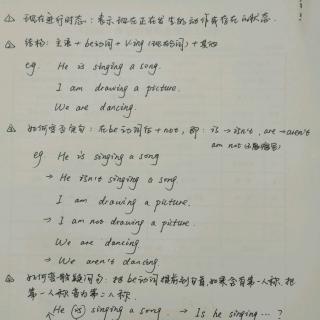 △ 现在进行时态：表示现在正在发生的动作或存在的状态.
△ 结构：主语 + be动词 + V-ing (现在分词) + 其他
eg. He is singing a song.
I am drawing a picture.
We are dancing.
△ 如何变否定句：在be动词后 + not, 即：is → isn't, are → aren't
am not
eg. He is singing a song
→ He isn't singing a song.
I am drawing a picture.
→ I am not drawing a picture.
We are dancing
→ We aren't dancing.
△ 如何变一般疑问句：把be动词提前到句首, 如果含有第一人称, 把
第一人称变为第二人称.
He is singing a song. → Is he singing ... ?